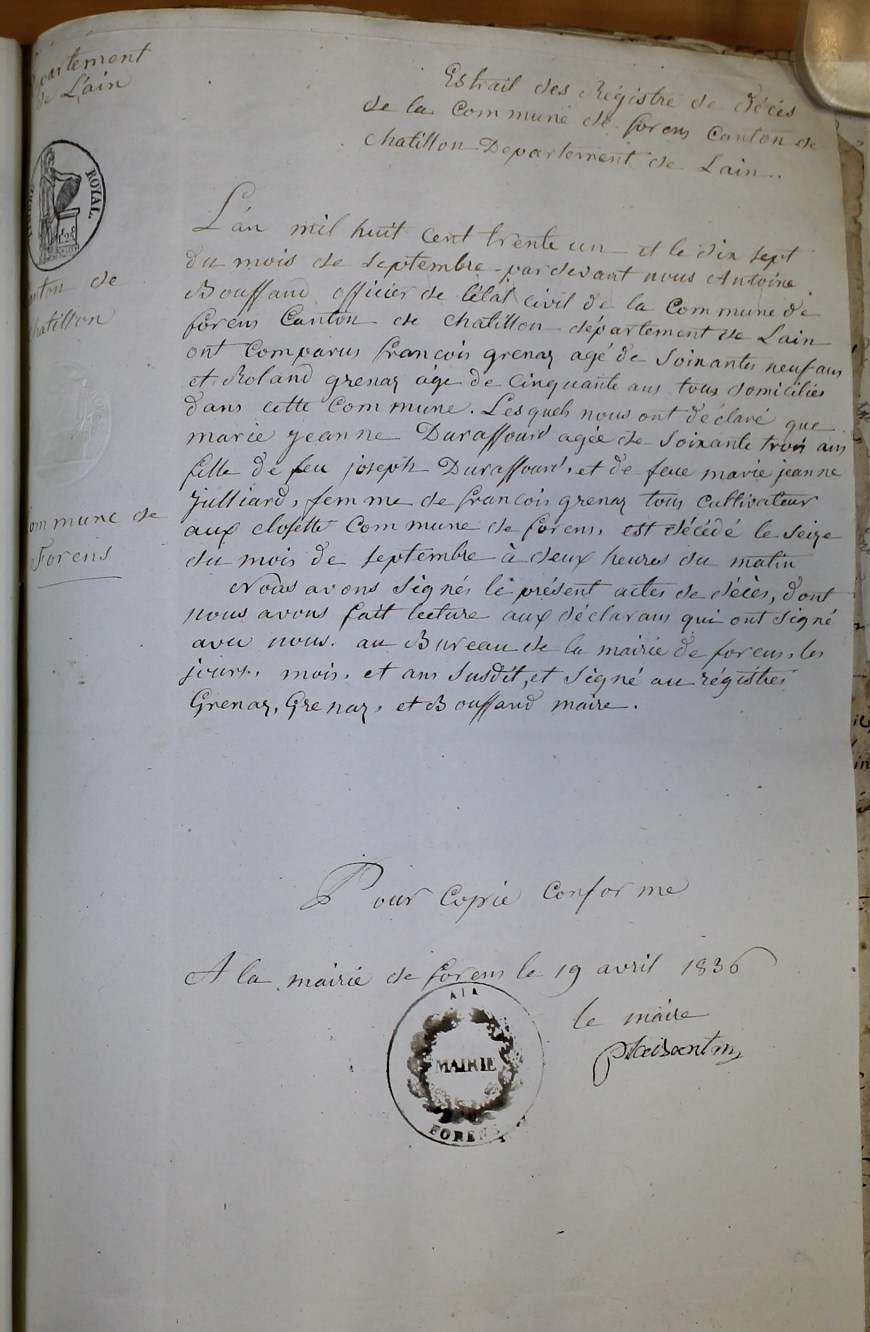 partement
de L'ain
Estrait des Régistre de décés
de la Commune de forens Canton de
chatillon Departement de Lain..
ROYAL.
L'an mil huit cent trente un et le dix sept
du mois de septembre pardevant nous Antoine
Bouffand officier de l'état civil de la Commune de
forens Canton de chatillon département de Lain
ont Comparus françois grenaz agé de soixantes neuf ans
et Roland grenaz age de cinquante ans tous domiciliés
dans cette Commune. Lesquels nous ont déclaré que
marie jeanne Duraffourd agée de soixante trois ans
fille de feu joseph Duraffourd, et de feue marie jeanne
julliard, femme de françois grenaz tous cultivateur
aux closette Commune de forens, est décédé le seize
du mois de septembre à deux heures du matin
Nous avons signés le présent actes de décès, dont
nous avons fait lecture aux déclarans qui ont signé
avec nous. au Bureau de la mairie de forens, les
jours, mois, et ans susdit, et signé au régistres
Grenaz, Grenaz, et Bouffand maire.
nton de
hatillon
ommune de
Forens
Pour Copie Conforme
A la mairie de forens le 19 avril 1836
le maire
AIN
MAIRIE
FORENS